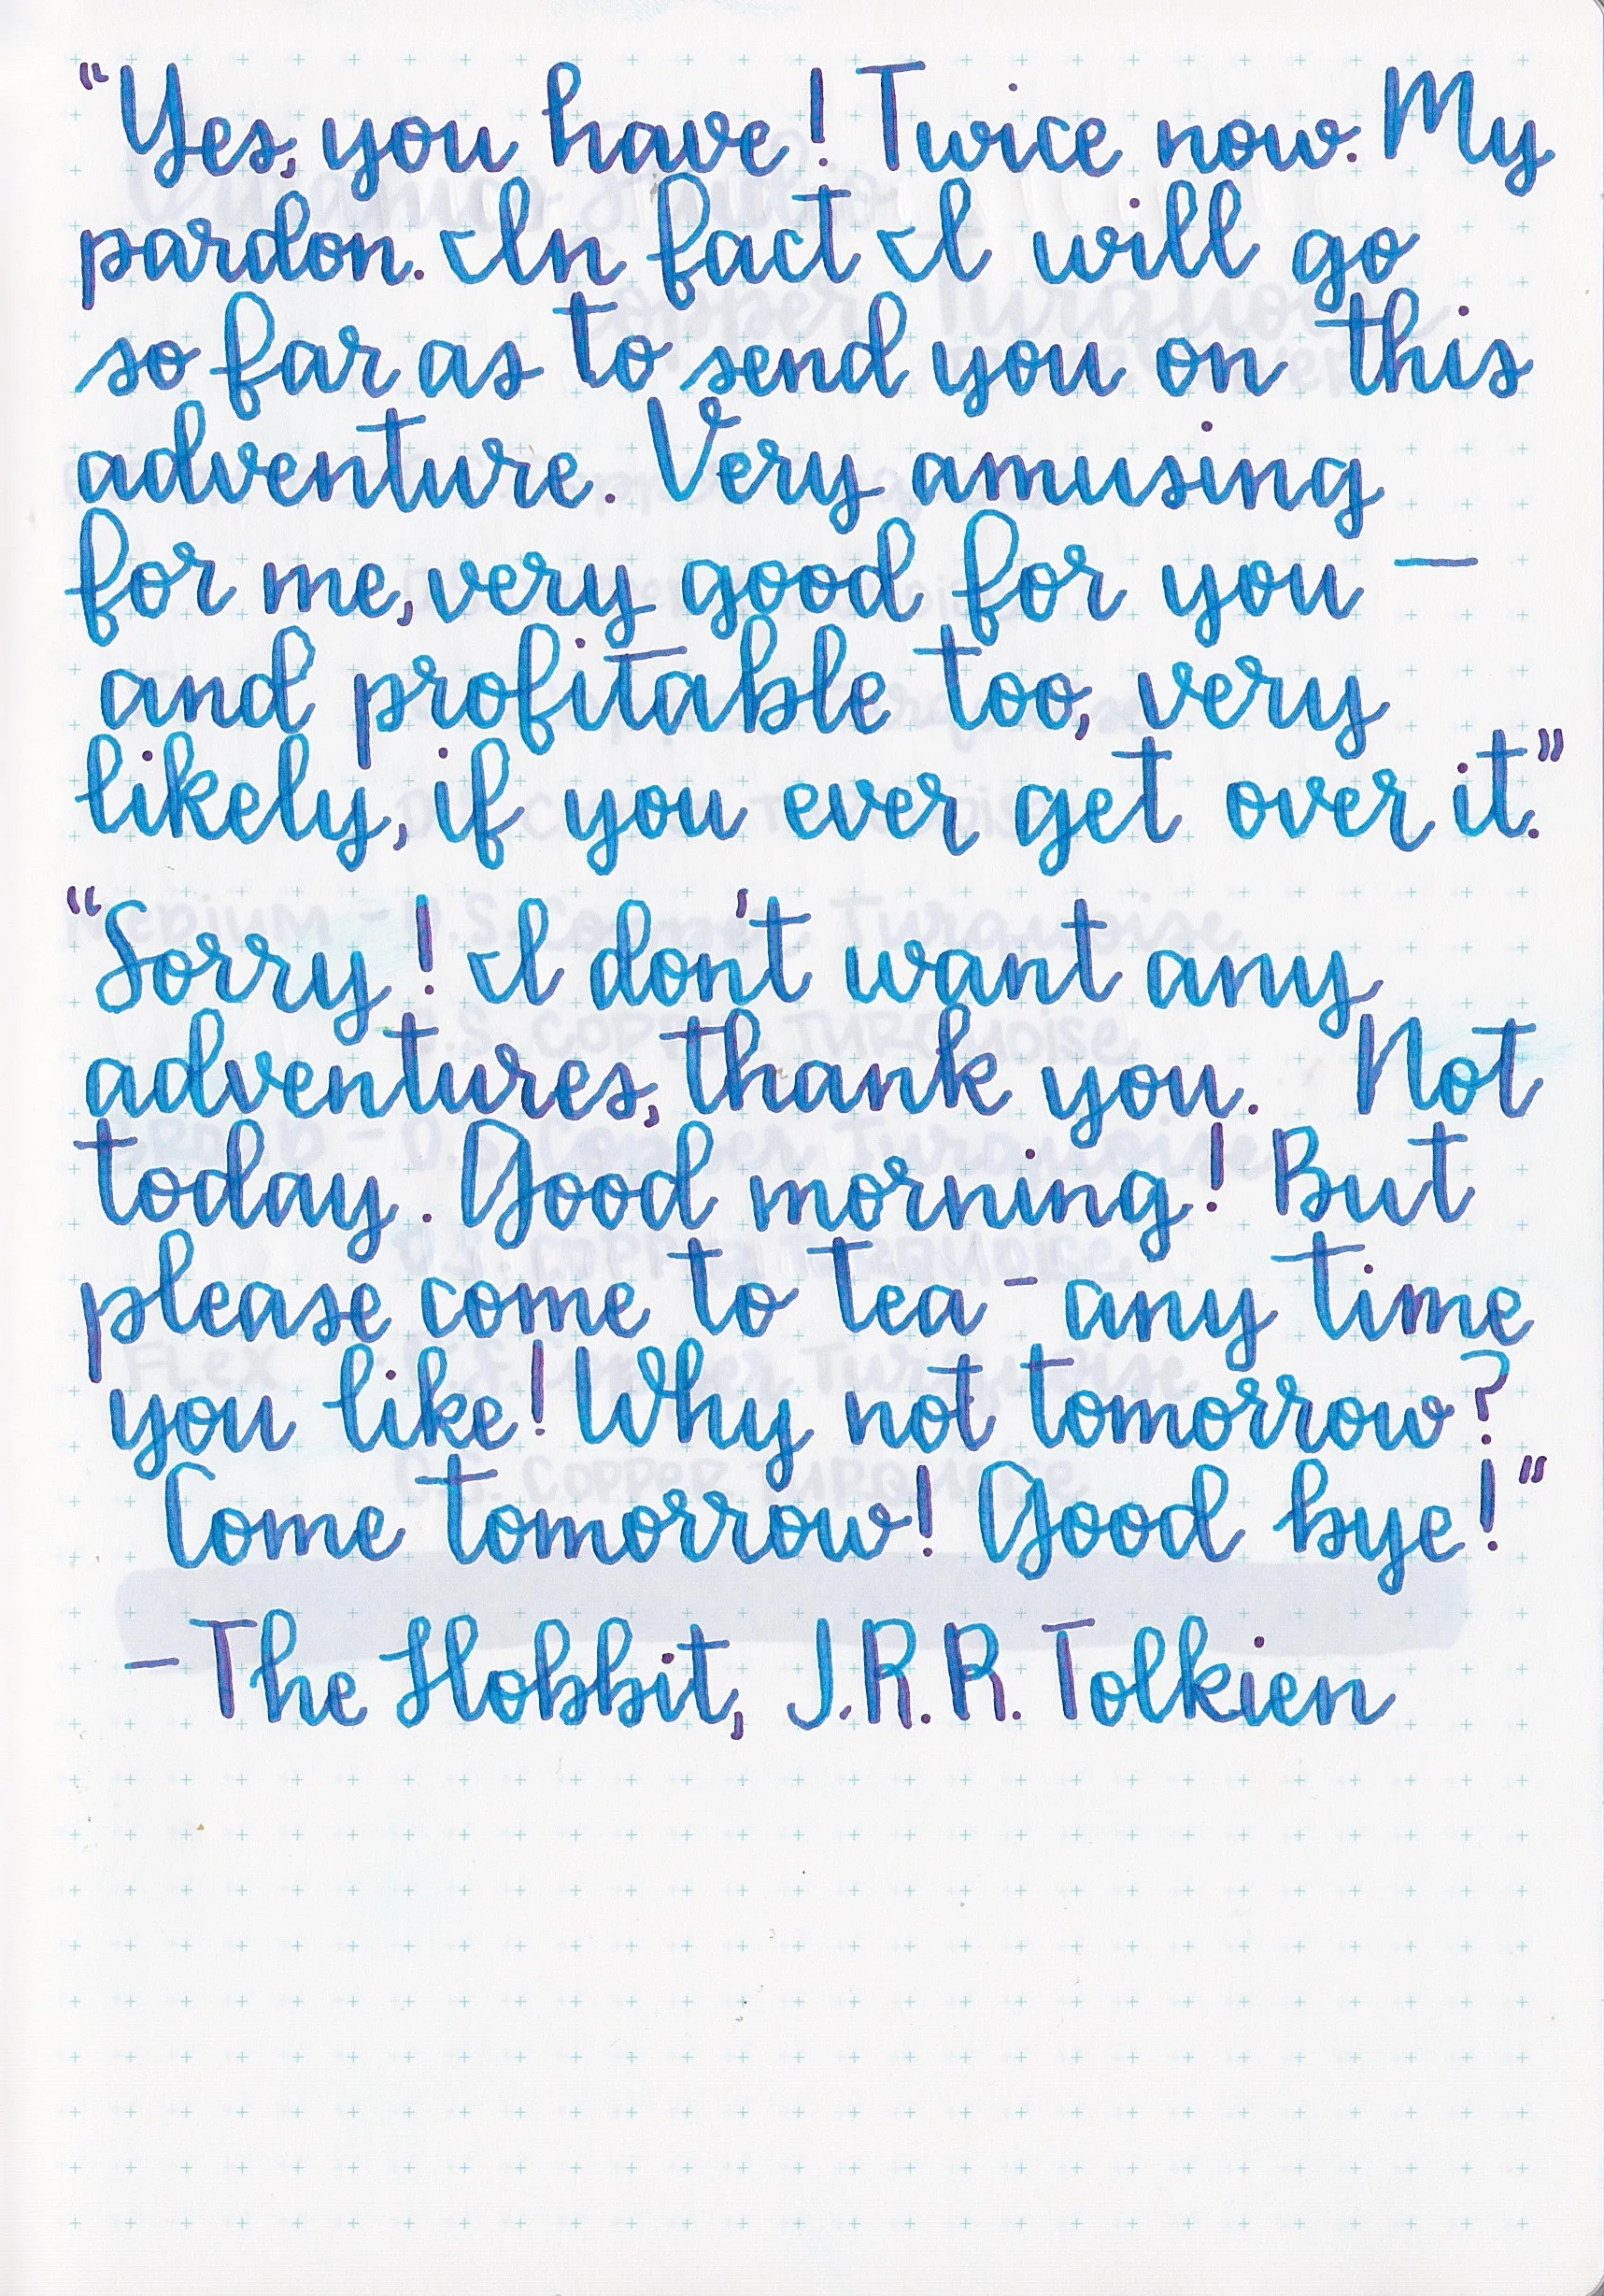 "Yes, you have! Twice now. My
pardon. In fact I will go
so far as to send you on this
adventure. Very amusing
for me, very good for you —
and profitable too, very
likely, if you ever get over it."
"Sorry! I don't want any
adventures, thank you. Not
today. Good morning! But
please come to tea - any time
you like! Why not tomorrow?
Come tomorrow! Good bye!"
- The Hobbit, J.R.R. Tolkien